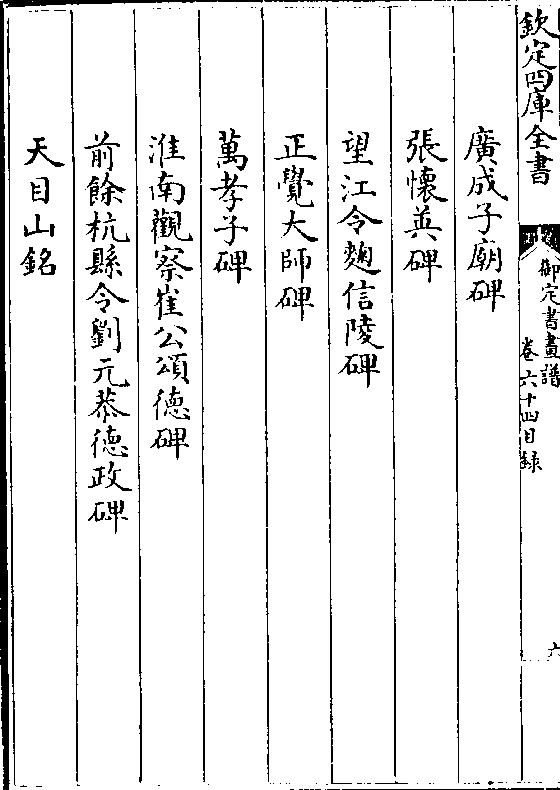 欽定四庫全書
御定書畫譜
卷六十四目錄
六
廣成子廟碑
張懷英碑
望江令麹信陵碑
正覺大師碑
萬孝子碑
淮南觀察崔公頌德碑
前餘杭縣令劉元恭德政碑
天目山銘